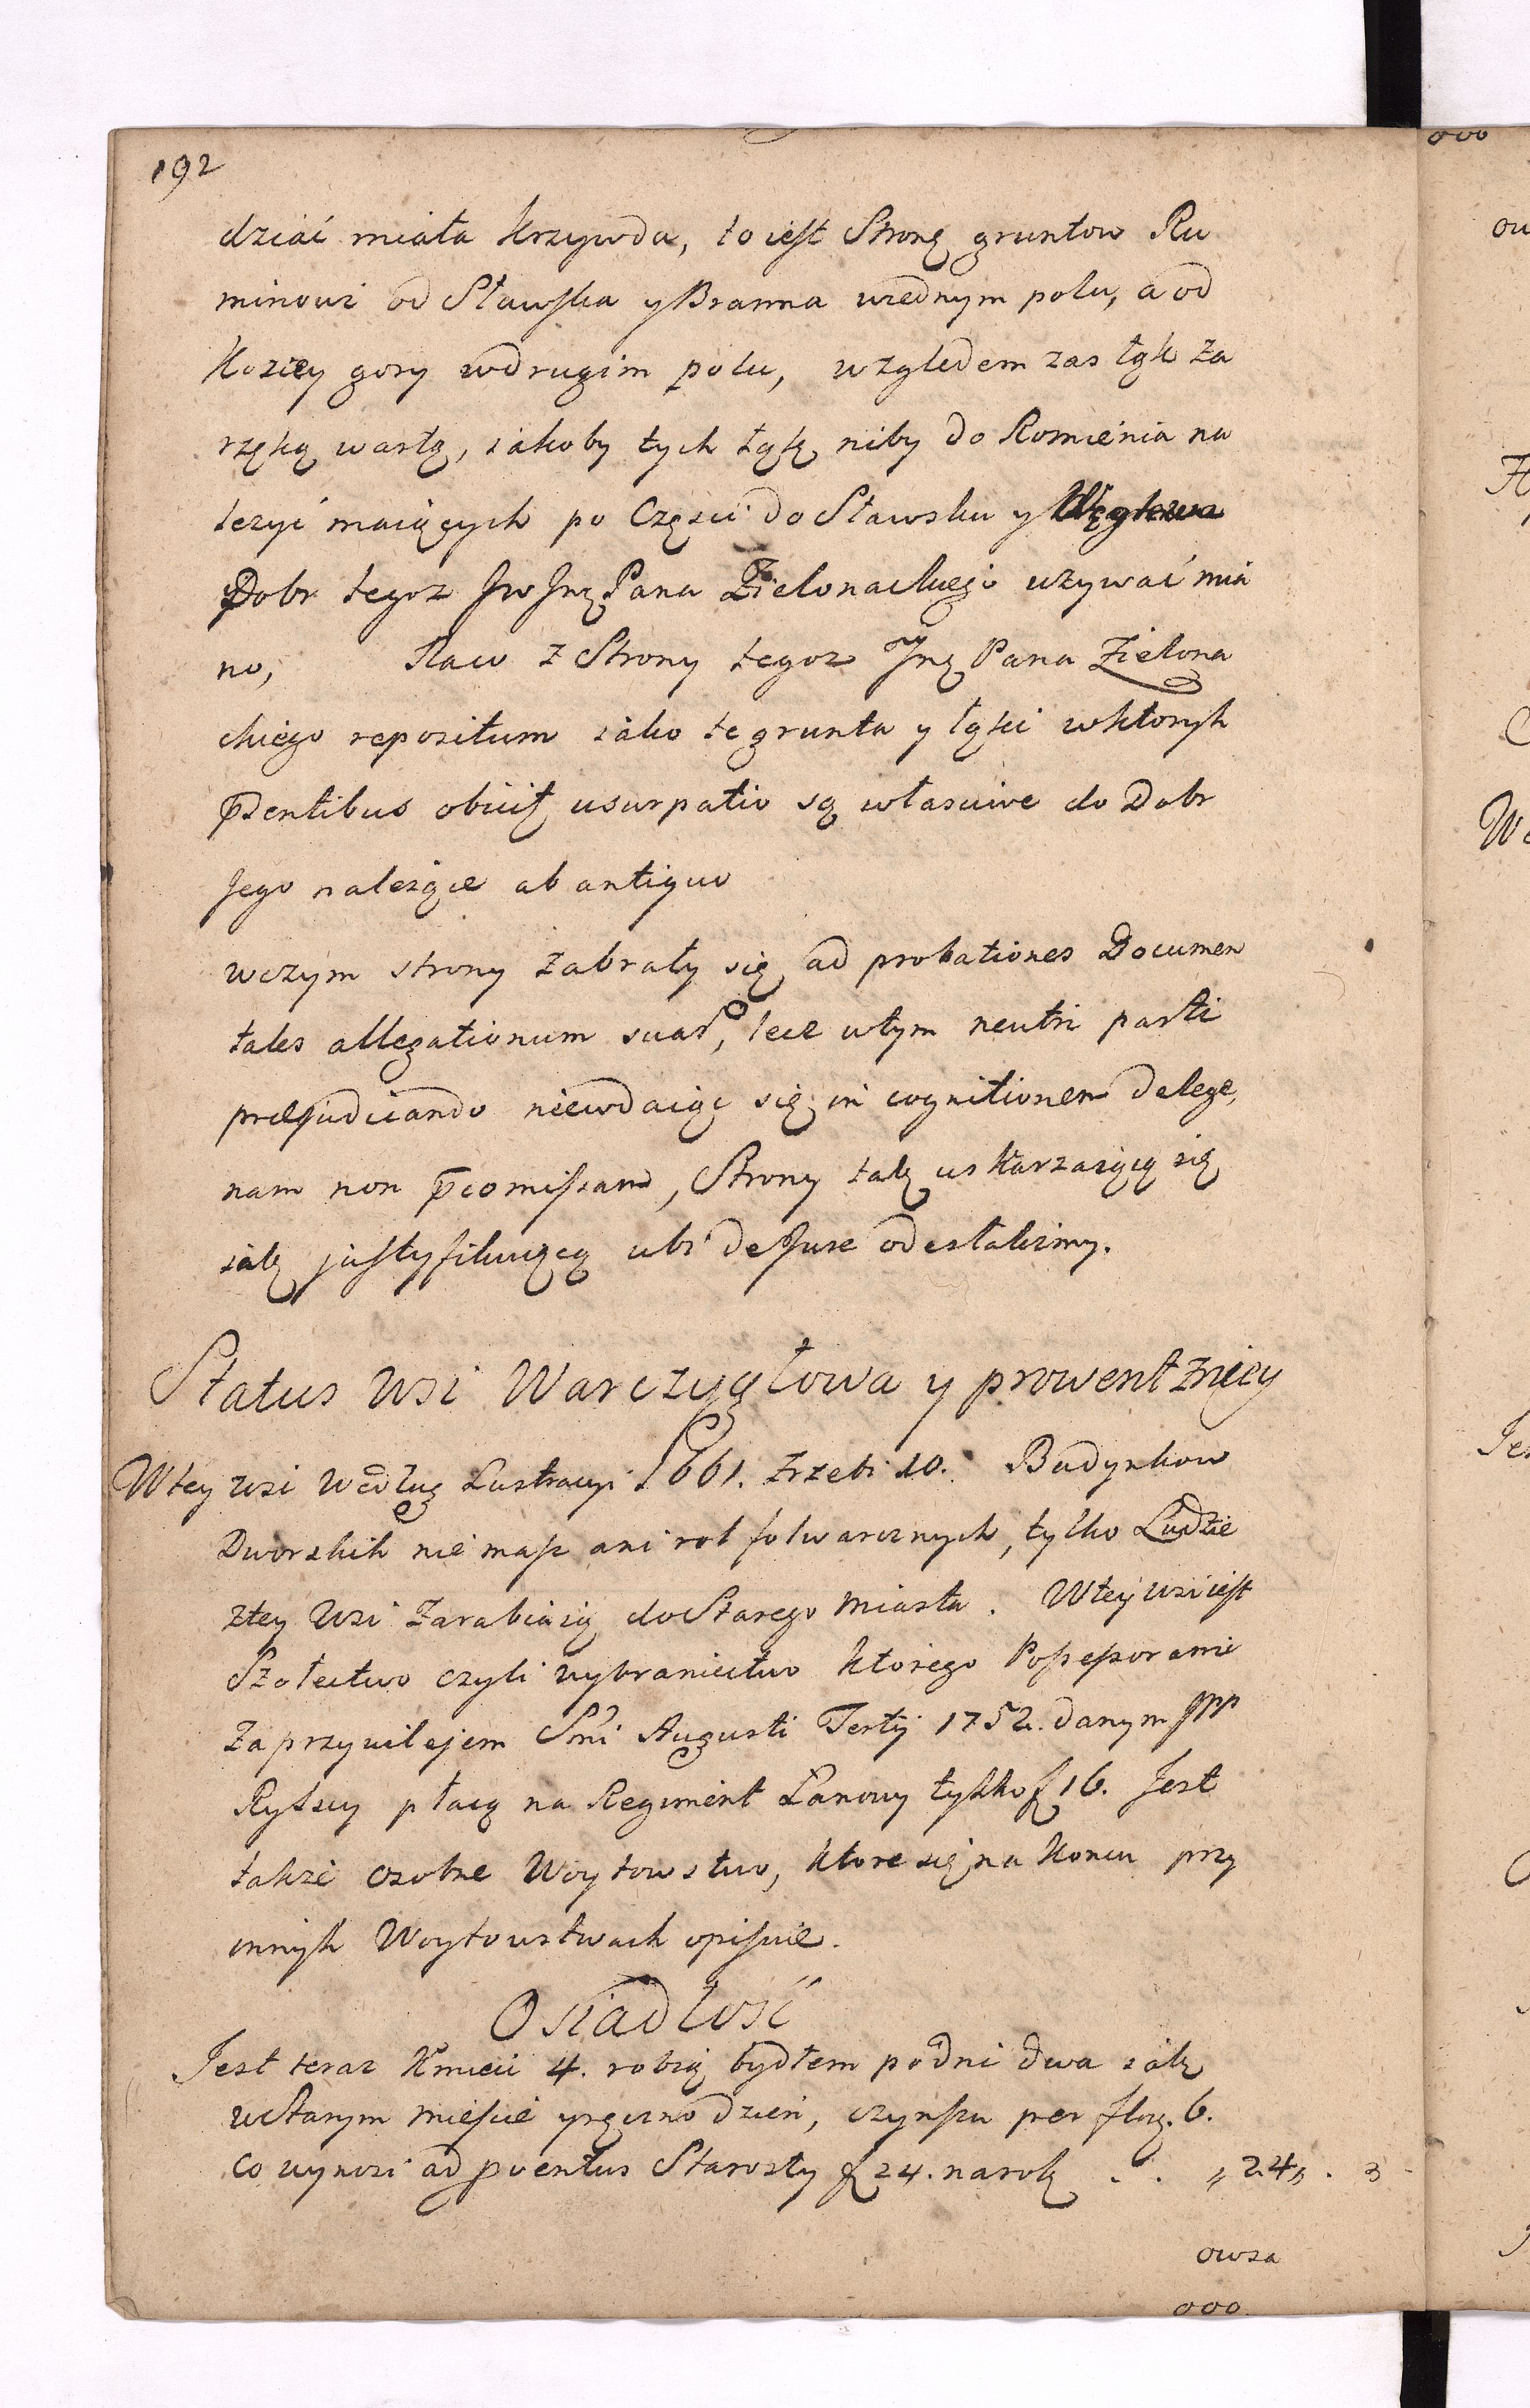 192
dziać miała krzywda, to iest Stronę gruntow Ru
minowi od Sławska y Branna wiednym polu, a od
Koziey gory wdrugim polu, względem zas łąk za
rzeką wartą, iakoby tych łąk niby do Romienia na
leżyć maiących po Części do Sławsku y Węglewa
Dobr tegoz Jw Jmę Pana Zielonackiego używać mia
no, Raw z Strony tegoz Jmę Pana Zielona
ckiego repositum iako te grunta y łąki wktorych
p̄dentibus obiicit usurpatio są własciwe do Dobr
Jego należące ab antiquo
wczym strony zabrały się ad probationes Documen
tales allegationum suar, lecz wtym neutri parti
præjudicando niewdaiąc się in cognitionem delege,
nam non p̄comissam, Strony tak uskarzaiącą się
iak justyfikuiącą ubi de Jure odesłalismy.
Status wsi Warczygłowa y prowent zniey
Wtey wsi według Lustracyi 1661. zrzebi 10. Budynkow
Dworskich nie masz ani rol folwarcznych, tylko Ludzie
ztey Wsi zarabiaią do Starego Miasta. Wtey wsi iest
Szołectwo czyli wybraniectwo ktorego
za przywilejem Smi Augusti Tertij 1752. danym JPP
Rylscy płacą na Regiment Łanowy tylko f 16. Jest
także osobne Woytowstwo, ktore się na koncu przy
innych Woytowstwach opisuie.
Osiadłość
Jest teraz Kmieci 4. robią bydłem po dni dwa iak
w Starym Miescie y ręczno dzień, czynszu per flor. 6.
co wynosi ad pventus Starosty f 24. na rok . . „ 24 „ . 3
owsa
000